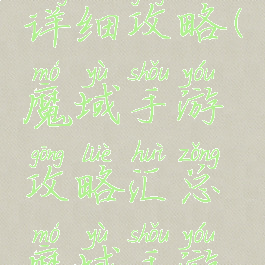 详细攻略(
mó yù shǒu yóu
魔域手游
gōng lüè huì zǒng
攻略汇总
mó yù shǒu yóu
魔域手游